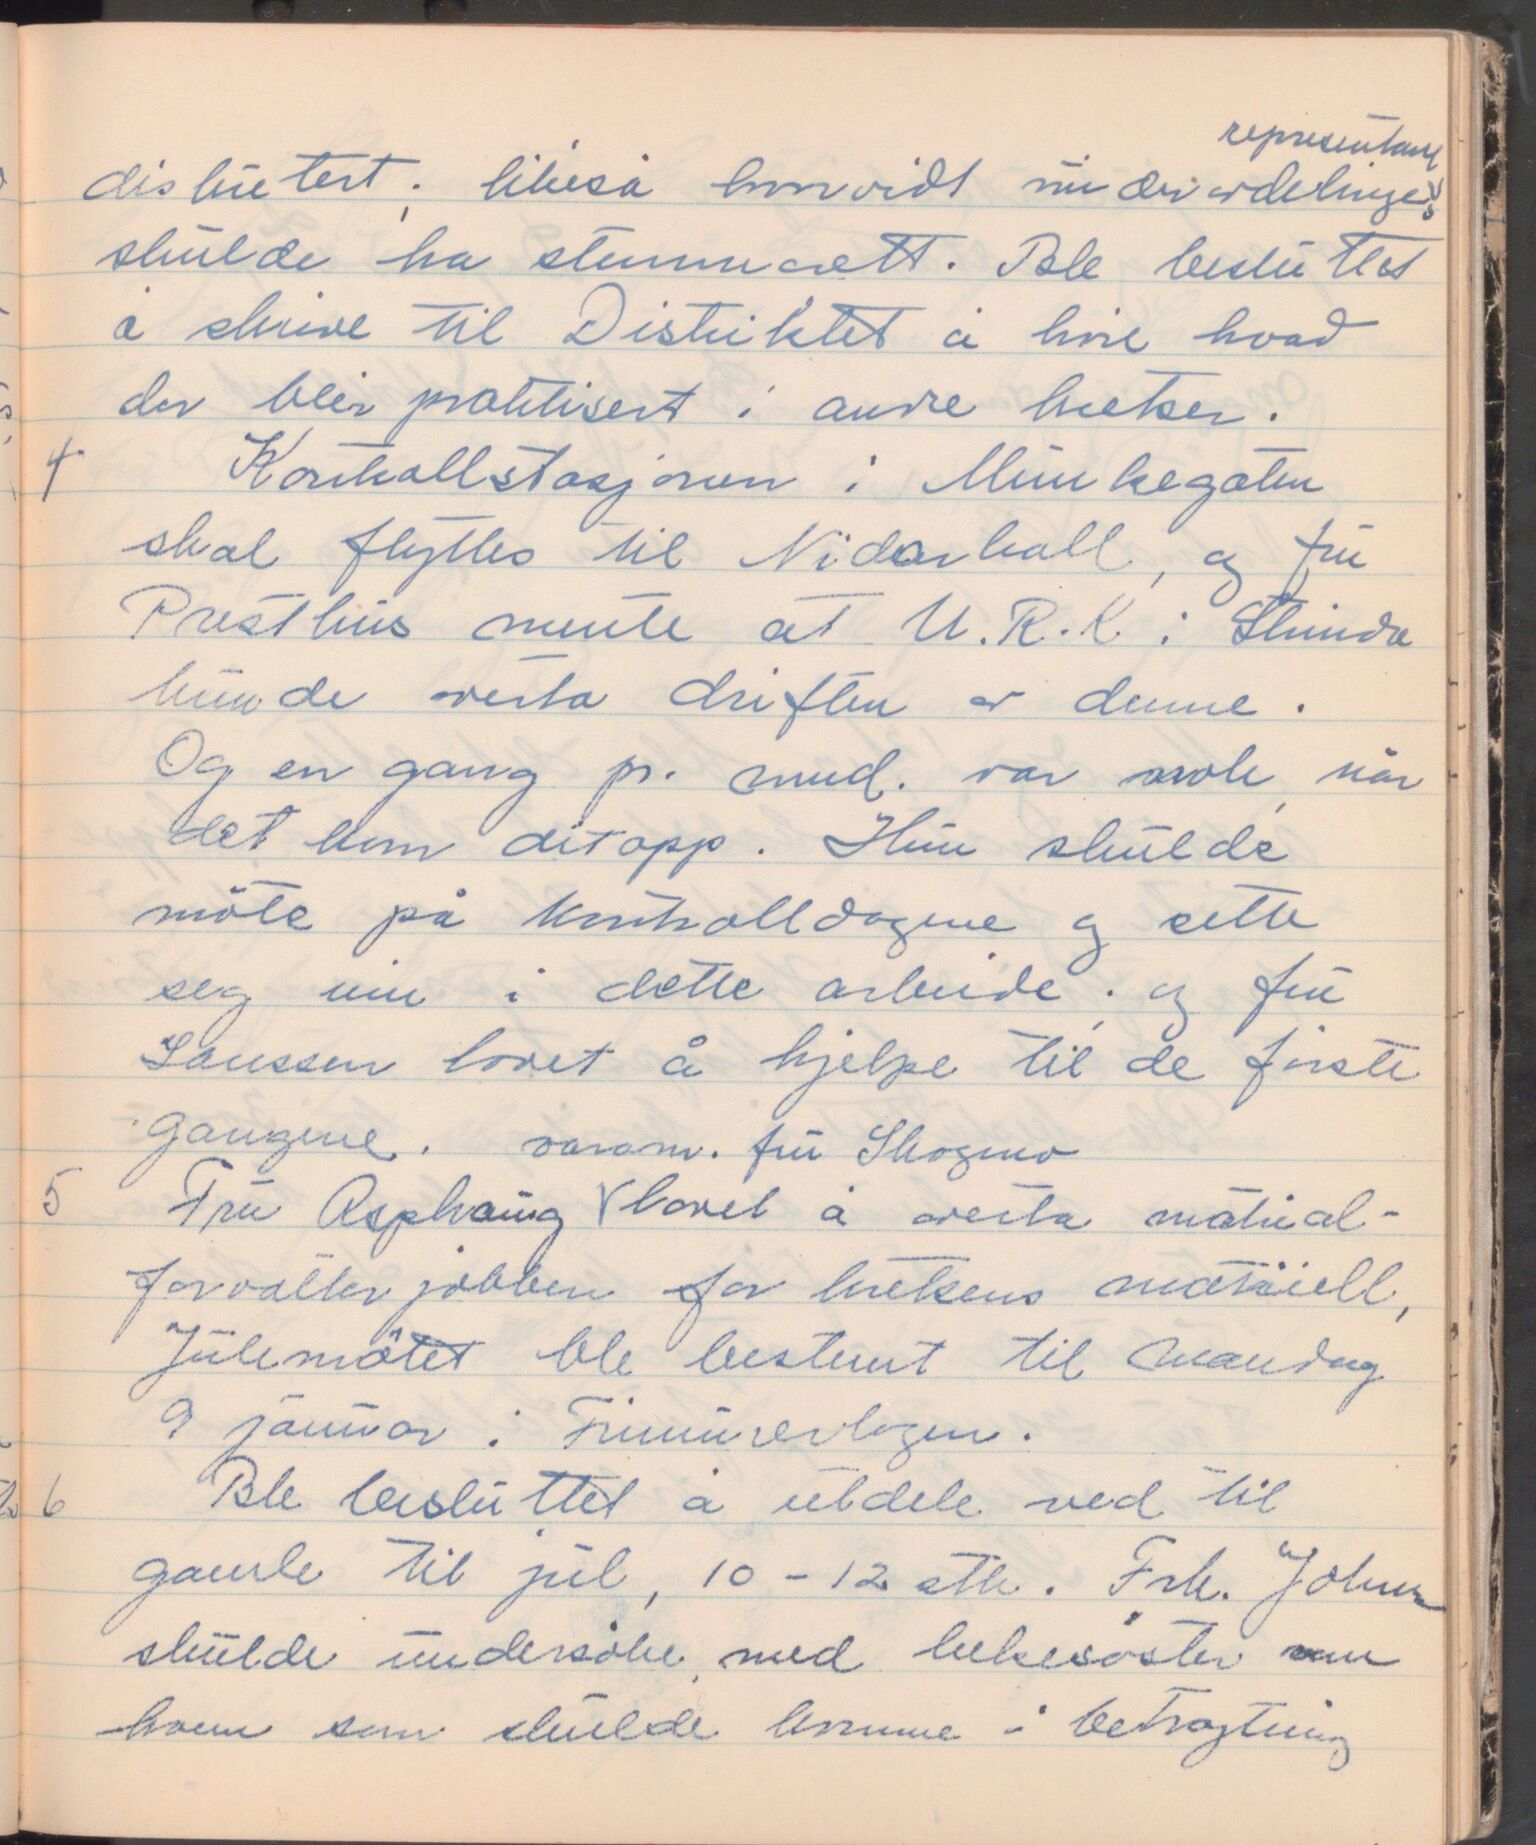 representant
diskutert; likeså hvorvidt underavdelingens
skulde ha stemmerett. Ble besluttet
å skrive til Distriktet å høre hvad
der blir praktisert i andre kretser.
4 Kontrollstasjonen i Munkegaten
skal flyttes til Nidarhall, og fru
Presthus mente at U.R.K. i Strinda
kunde overta driften av denne.
Og en gang pr. mnd. var nok, når
det kom ditopp. Hun skulde
möte på kontrolldagene og sette
seg inn i dette arbeide; og fru
Janssen lovet å hjelpe til de første
gangene. varam. fru Skogmo
5 Fru Asphaug lovet å overta matrial-
forvalter jobben for kretsens matriell,
Julemötet ble bestemt til mandag
9 januar i Frimurerlogen.
6 Ble besluttet å utdele ved til
gamle til jul, 10-12 stk. Frk. Johnsen
skulde undersöke med kretssöster om
hvem som skulde komme i betragtning